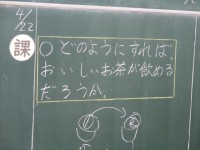 4/22
課
○どのようにすれば、
おいしいお茶が飲める
だろうか。